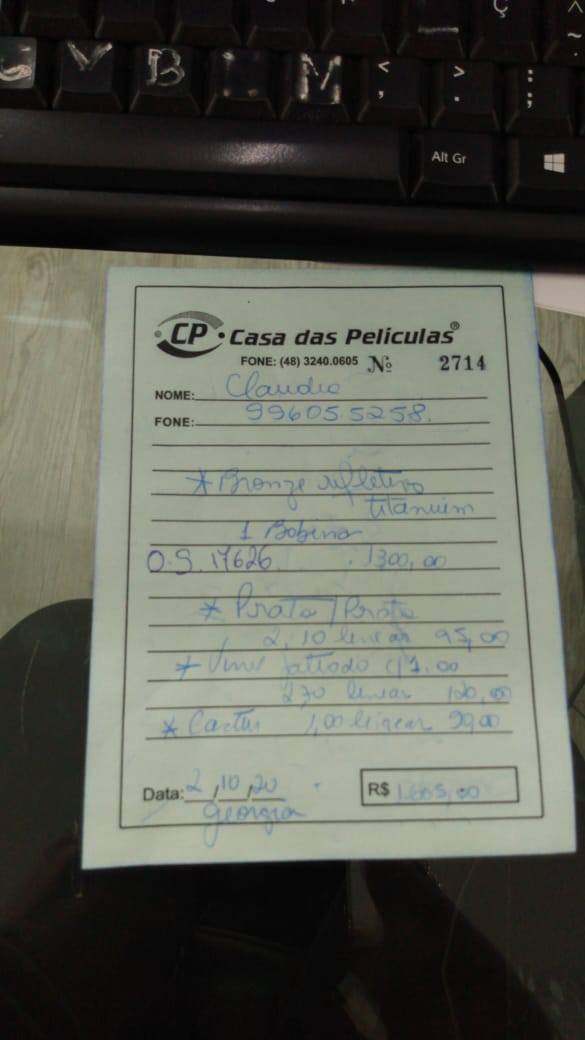 Ç ^ ~
V B M < , > . : ;
Alt Gr
CP Casa das Películas®
FONE: (48) 3240.0605 Nº 2714
NOME: Claudio
FONE: 99605.5258.
* Bronze refletivo
titanium
1 Bobina
O.S. 17626 1300,00
* Prata/Prata
2,10 linear 95,00
* Vinil Jatiado c/1.00
2,70 linear 120,00
* 1,00 linear 90,00
Data: 2/10/20 R$ 1.605,00
Georgia